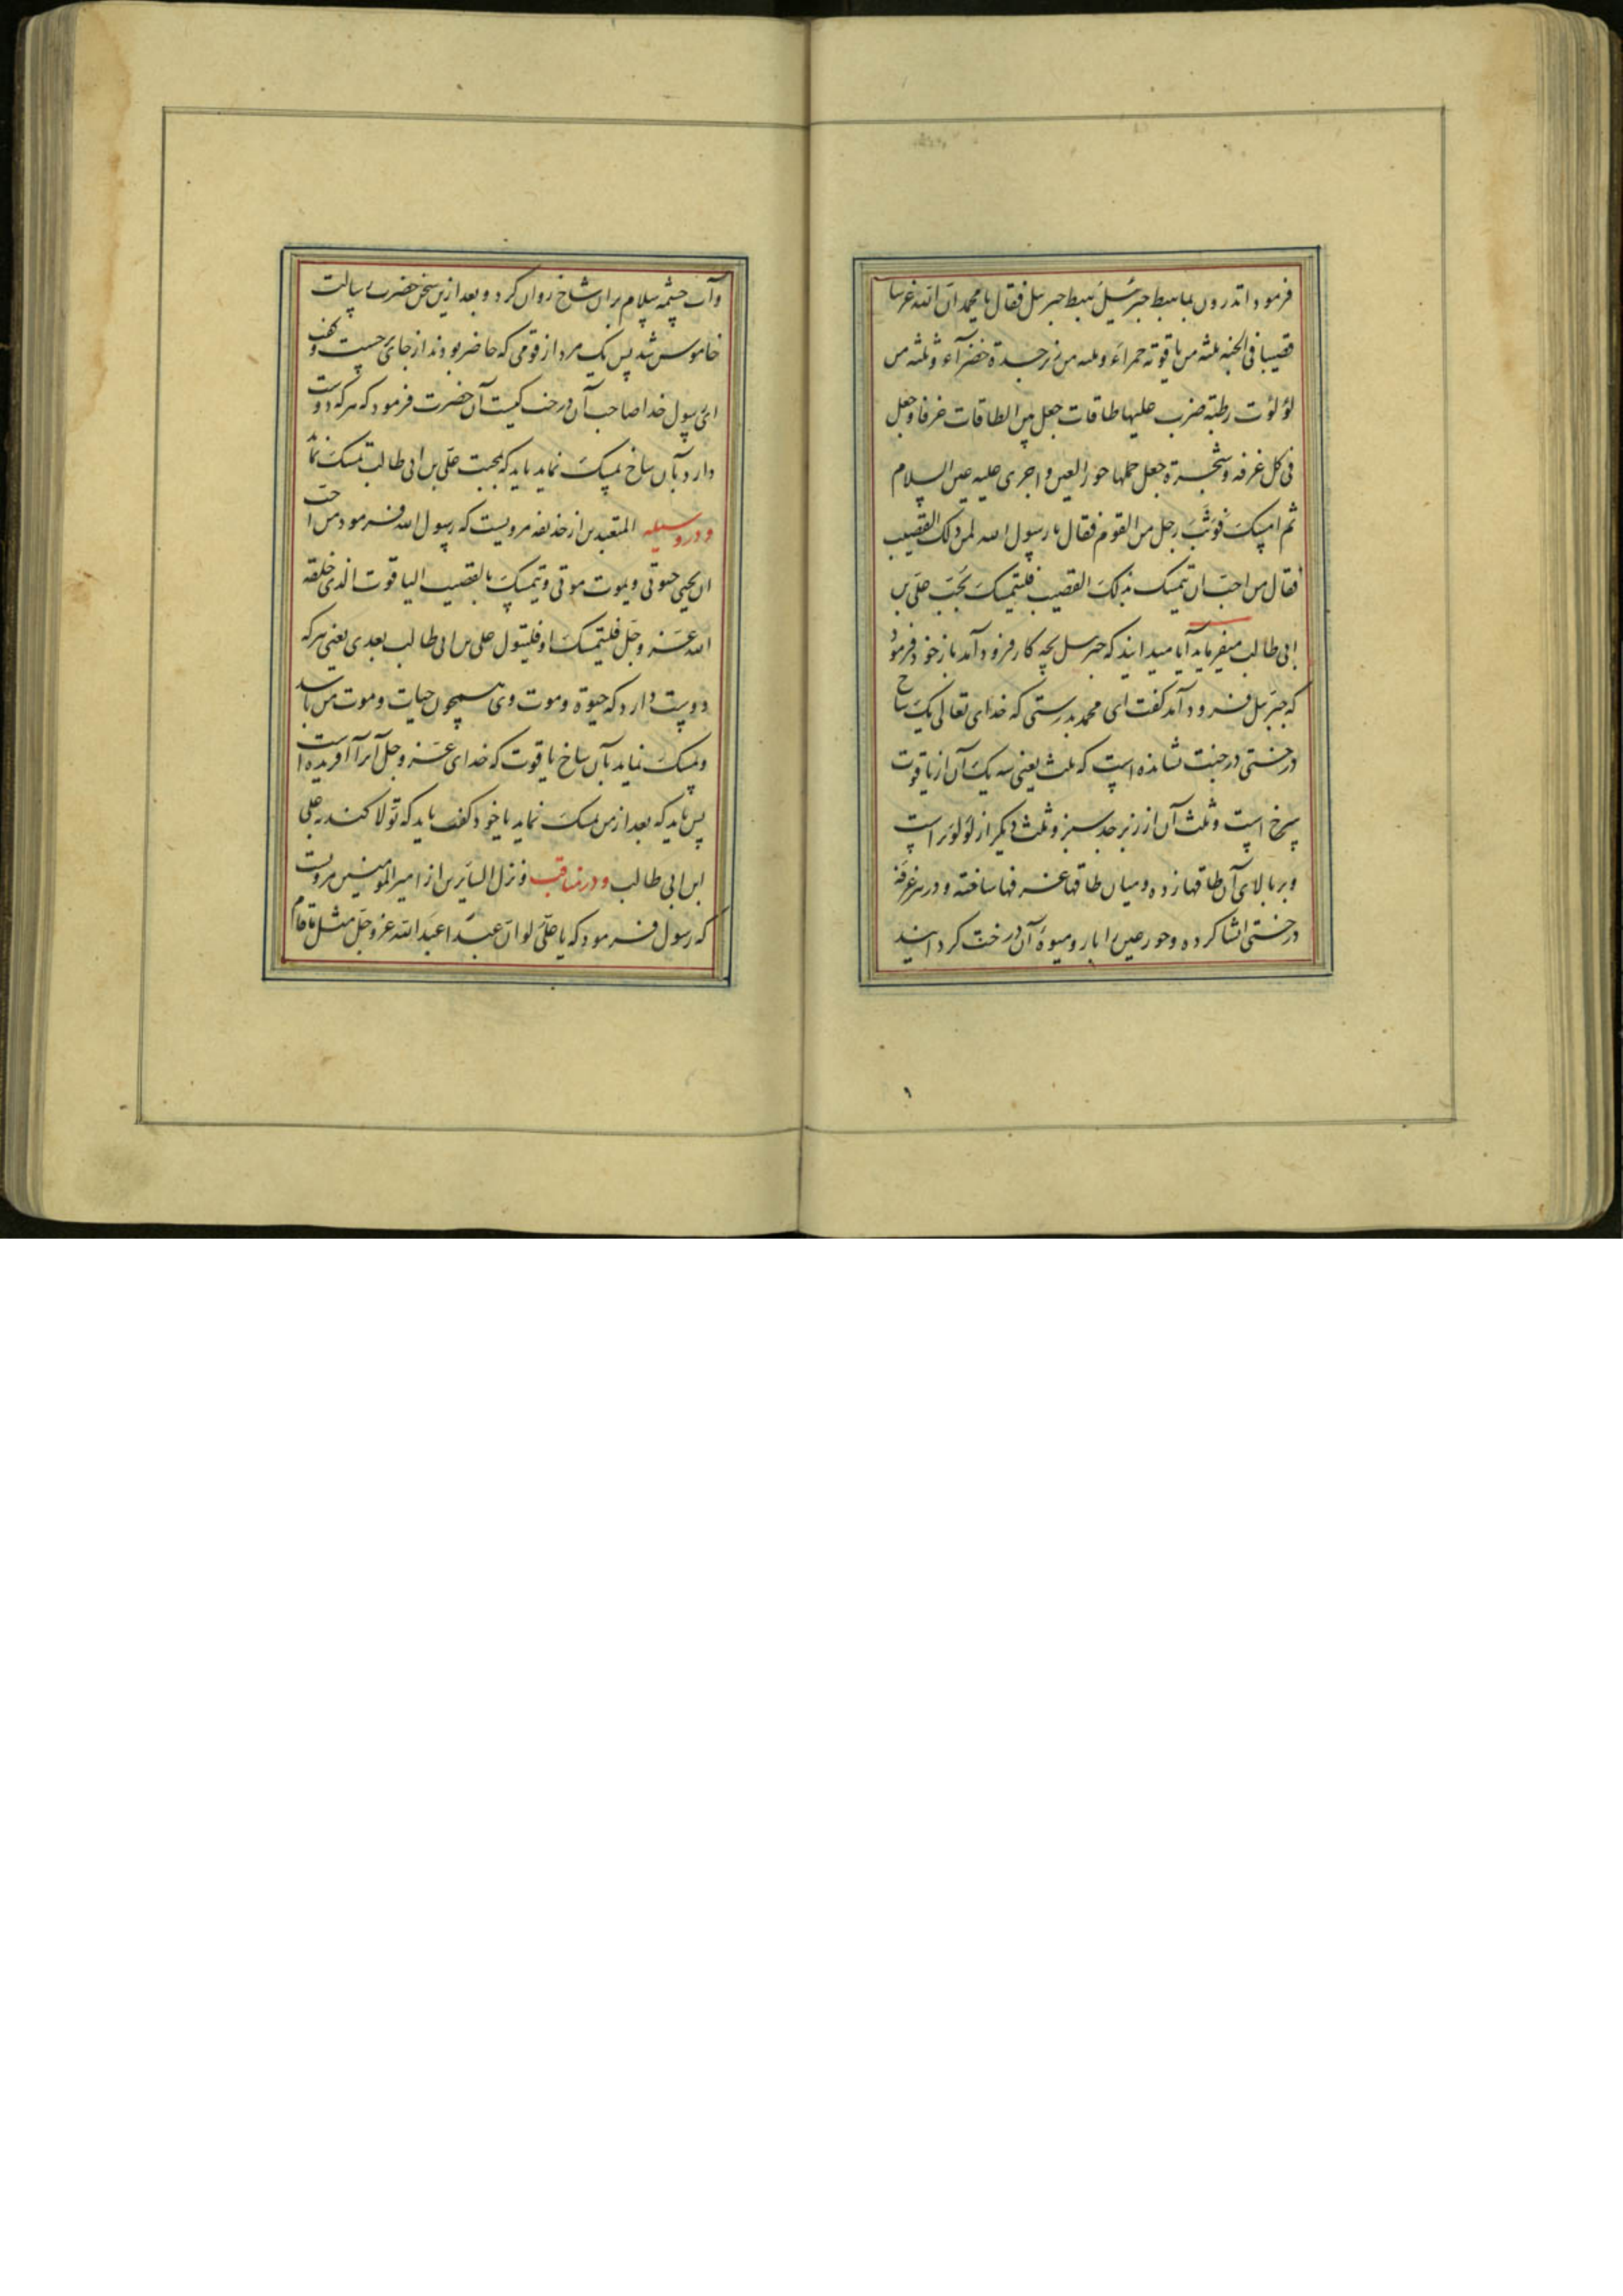 فرمود اتدرون بما هبط جبرئیل هبط جبرئیل فقال یا محمد ان الله غرسا
قضیبا فی الجنه ثلثه من یاقوته حمراء و ثلثه من زبرجدة خضراء و ثلثه من
لؤلؤت رطبته ضرب علیها طاقات جعل بین الطاقات غرفا و جعل
فی کل غرفه و شجرة جعل حملها حور العین و اجری علیه عین السلام
ثم امسک فوثب رجل من القوم فقال یا رسول الله لمن ذلک القضیب
فقال من احب ان یتمسک بذلک القضیب فلیتمسک بحب علی بن
ابی طالب میفرماید آیا میدانید که جبرئیل بچه کار فرود آمد باز خود فرمود
که جبرئیل فرود آمد گفت ای محمد بدرستی که خدای تعالی یک شاخ
درختی در جنت نشانده است که ثلث یعنی سه یک آن از یاقوت
سرخ است و ثلث آن از زبرجد سبز و ثلث دیگر از لؤلؤ تر است
و بر بالای آن طاقها زده و میان طاقها غرفها ساخته و در هر غرفه
درختی انشا کرده و حور عین را بار و میوه آن درخت کردانید
و آب چشمه سلام بران شاخ روان کرد و بعد ازین سخن حضرت رسالت
خاموش شد پس یک مرد از قومی که حاضر بودند از جای جست و گفت
ای رسول خدا صاحب آن درخت کیست آن حضرت فرمود که هر که دوست
دارد بآن شاخ تمسک نماید باید که بمحبت علی بن ابی طالب تمسک نماید
و در وسیله المتعبدین از حذیفه مرویست که رسول الله فرمود من احب
ان یحیی حیوتی و یموت موتی و یتمسک بالقضیب الیاقوت الذی خلقه
الله عز و جل فلیتمسک او فلیتول علی بن ابی طالب بعدی یعنی هر که
دوست دارد که حیوة و موت وی همچون حیات و موت من باشد
و تمسک نماید بآن شاخ یاقوت که خدای عز و جل آنرا آفریده است
پس باید که بعد از من تمسک نماید یا خود گفت باید که تولا کند به علی
ابن ابی طالب و در مناقب و نزل السایرین از امیر المومنین مرویست
که رسول فرمود که یا علی لو ان عبدا عبد الله عز و جل مثل ما قام